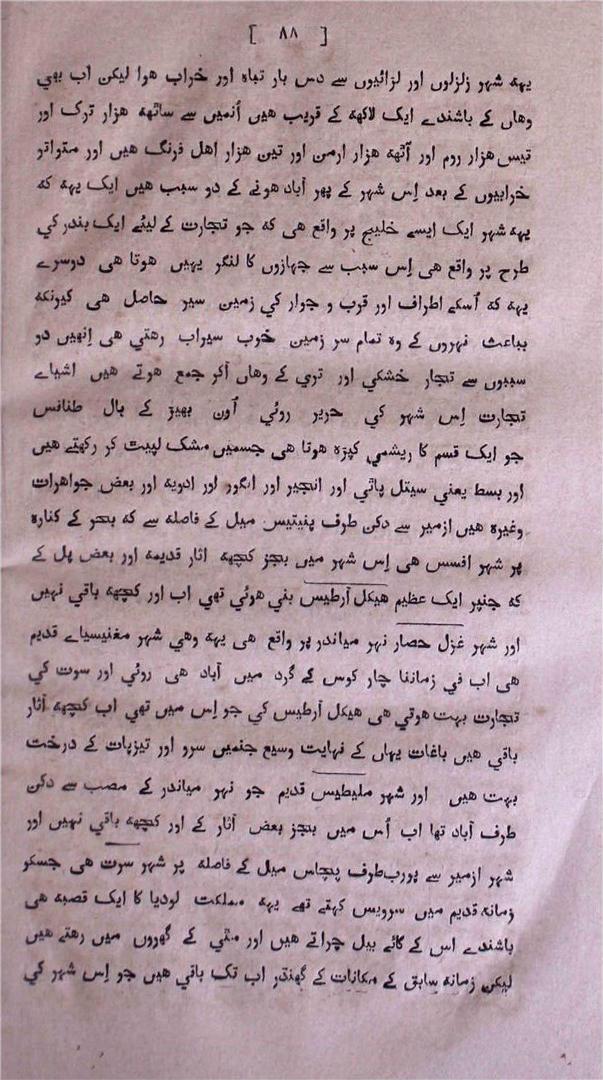 [ ٨٨ ]
یهه شهر زلزلوں اور لڑائیوں سے دس بار تباه اور خراب هوا لیکن اب بهي
وهاں کے باشندے ایک لاکهه کے قریب هیں اُنمیں سے ساٹهه هزار ترک اور
تیس هزار روم اور آٹهه هزار ارمن اور تین هزار اهل فرنگ هیں اور متواتر
خرابیوں کے بعد اِس شهر کے پهر آباد هونے کے دو سبب هیں ایک یهه که
یهه شهر ایک ایسے خلیج پر واقع هی که جو تجارت کے لیئے ایک بندر کي
طرح پر واقع هی اِس سبب سے جهازوں کا لنگر یهیں هوتا هی دوسرے
یهه که اُسکے اطراف اور قرب و جوار کي زمین سیر حاصل هی کیونکه
بباعث نهروں کے وه تمام سر زمین خوب سیراب رهتي هی اِنهیں دو
سببوں سے تجار خشکي اور تري کے وهاں آکر جمع هوتے هیں اشیاے
تجارت اِس شهر کي حریر روئي اُون بهیڑ کے بال طنافس
جو ایک قسم کا ریشمي کپڑه هوتا هی جسمیں مشک لپیٹ کر رکهتے هیں
اور بسط یعني سیتل پاٹي اور انجیر اور انگور اور ادویه اور بعض جواهرات
وغیره هیں ازمیر سے دکن طرف پنیتیس میل کے فاصله سے که بحر کے کناره
پر شهر افسس هی اِس شهر میں بجز کچهه اثار قدیمه اور بعض پل کے
که جنپر ایک عظیم هیکل آرطیس بني هوئي تهي اب اور کچهه باقي نهیں
اور شهر غزل حصار نهر میاندر پر واقع هی یهه وهي شهر مغنیسیاے قدیم
هی اب في زماننا چار کوس کے گرد میں آباد هی روئي اور سوت کي
تجارت بهت هوتي هی هیکل آرطیس کي جو اِس میں تهي اب کچهه آثار
باقي هیں باغات یهاں کے نهایت وسیع جنمیں سرو اور تیزپات کے درخت
بهت هیں اور شهر ملیطیس قدیم جو نهر میاندر کے مصب سے دکن
طرف آباد تها اب اُس میں بجز بعض آثار کے اور کچهه باقي نهیں اور
شهر ازمیر سے پورب طرف پچاس میل کے فاصله پر شهر سرت هی جسکو
زمانه قدیم میں سرویس کهتے تهے یهه مملکت لودیا کا ایک قصبه هی
باشندے اس کے گائے بیل چراتے هیں اور مٹي کے گهروں میں رهتے هیں
لیکن زمانه سابق کے مکانات کے گهنڈر اب تک باقي هیں جو اِس شهر کي